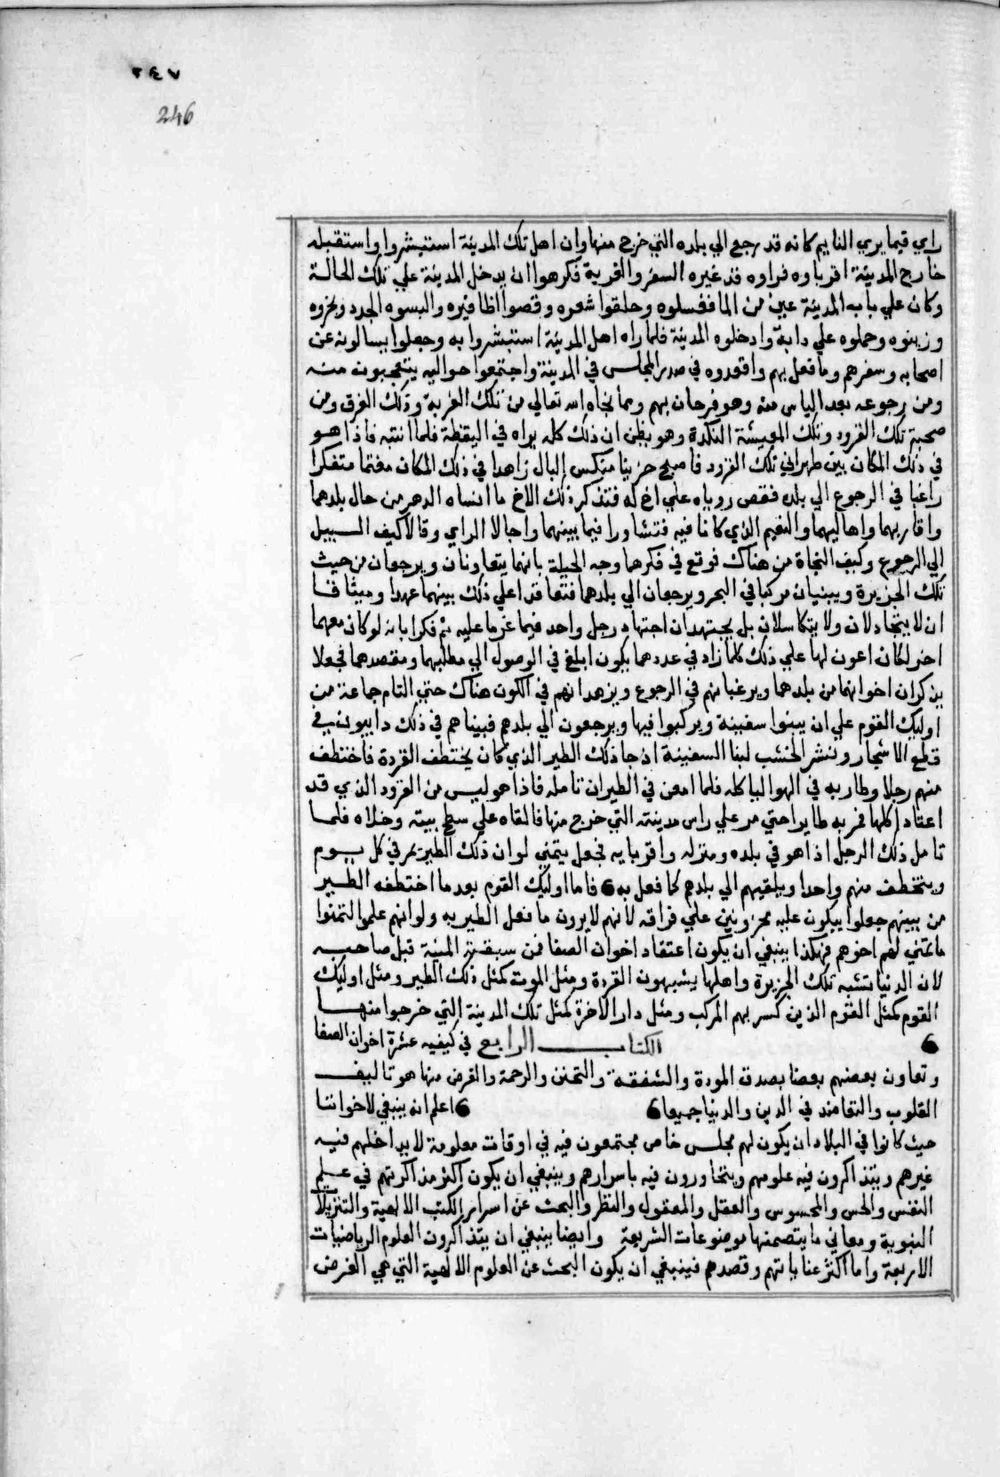 ٢٤٧
246
راي فيما يري النايم كانه قد رجع الي بلده التي خرج منها وان اهل تلك المدينة استبشروا واستقبله
خارج المدينة اقرباوه فراوه قد غيره السفر والغربة فكرهوا ان يدخل المدينة علي تلك الحالة
وكان علي باب المدينة عين من الما فغسلوه وحلقوا شعره وقصوا اظافيره والبسوه الجدد وبخروه
وزينوه وحملوه علي دابة وادخلوه المدينة فلما راه اهل المدينة استبشروا به وجعلوا يسالونه عن
اصحابه وسفرهم وما فعل بهم واقعدوه في صدر المجلس في المدينة واجتمعوا حواليه يتعجبون منه
ومن رجوعه بعد الياس منه وهو فرحان بهم وبما نجاه الله تعالي من تلك الغربة وذلك الغرق ومن
صحبة تلك القرود وتلك المعيشة النكدة وهو يظن ان ذلك كله يراه في اليقظة فلما انتبه فاذا هو
في ذلك المكان بين ظهراني تلك القرود فاصبح حزينا منكس البال زاهدا في ذلك المكان مغتما متفكرا
راغبا في الرجوع الي بلده فقص روياه علي اخ له فتذكر ذلك الاخ ما انساه الدهر من حال بلدهما
واقاربهما واهاليهما والنعيم الذي كانا فيه فتشاورا فيما بينهما واجالا الراي وقالا كيف السبيل
الي الرجوع وكيف النجاة من هناك فوقع في فكرهما وجه الحيلة بانهما يتعاونان ويرجعان من حيث
تلك الجزيرة ويبنيان مركبا في البحر ويرجعان الي بلدهما فتعاقدا علي ذلك بينهما عهدا وميثاقا
ان لا يتخادلان ولا يتكاسلان بل يجتهدان اجتهاد رجل واحد فيما عزما عليه ثم فكرا بانه لو كان معهما
اخر لكان اعون لهما علي ذلك كلما زاد في عددهما يكون ابلغ في الوصول الي مطلبهما ومقصدهما فجعلا
يذكران اخوانهما من بلدهما ويرغبانهم في الرجوع ويزهدانهم في الكون هناك حتي التام جماعة من
اوليك القوم علي ان يبنوا سفينة ويركبوا فيها ويرجعون الي بلدهم فبيناهم في ذلك دايبون في
قطع الاشجار ونشر الخشب لبنا السفينة اذ جا ذلك الطير الذي كان يختطف القردة فاختطف
منهم رجلا وطار به في الهوا لياكله فلما امعن في الطيران تامله فاذا هو ليس من القرود الذي قد
اعتاد اكلها فمر به طايرا حتي مر علي راس مدينته التي خرج منها فالقاه علي سطح بيته وخلاه فلما
تامل ذلك الرجل اذا هو في بلده ومنزله واقربايه فجعل يتمني لو ان ذلك الطير يمر في كل يوم
ويتخطف منهم واحدا ويلقيهم الي بلدهم كما فعل به فاما اوليك القوم بعد ما اختطفه الطير
من بينهم جعلوا يبكون عليه محزونين علي فراقه لانهم لا يرون ما فعل الطير به ولو انهم علموا لتمنوا
ما تمني لهم اخوهم فهكذا ينبغي ان يكون اعتقاد اخوان الصفا فمن سبقته المنية قبل صاحبه
لان الدنيا تشبه تلك الجزيرة واهلها يشبهون القردة ومثل الموت كمثل ذلك الطير ومثل اوليك
القوم كمثل القوم الذين كسر بهم المركب ومثل دار الاخرة كمثل تلك المدينة التي خرجوا منها
الكتاب الرابع في كيفيه عشرة اخوان الصفا
وتعاون بعضهم بعضا بصدق المودة والشفقة والتحنن والرحمة والغرض منها هو تاليف
القلوب والتعاضد في الدين والدنيا جميعا اعلم انه ينبغي لاخواننا
حيث كانوا في البلاد ان يكون لهم مجلس خاص مجتمعون فيه في اوقات معلومة لا يداخلهم فيه
غيرهم ويتذاكرون فيه علومهم ويتحاورون فيه باسرارهم وينبغي ان يكون اكثر مذاكرتهم في علم
النفس والحس والمحسوس والعقل والمعقول والنظر والبحث عن اسرار الكتب الالهية والتنزيلات
النبوية ومعاني ما يتضمنها موضوعات الشريعة وايضا ينبغي ان يتذاكرون العلوم الرياضيات
الاربعة واما اكثر عنايتهم وقصدهم فينبغي ان يكون البحث عن العلوم الالهية التي هي الغرض